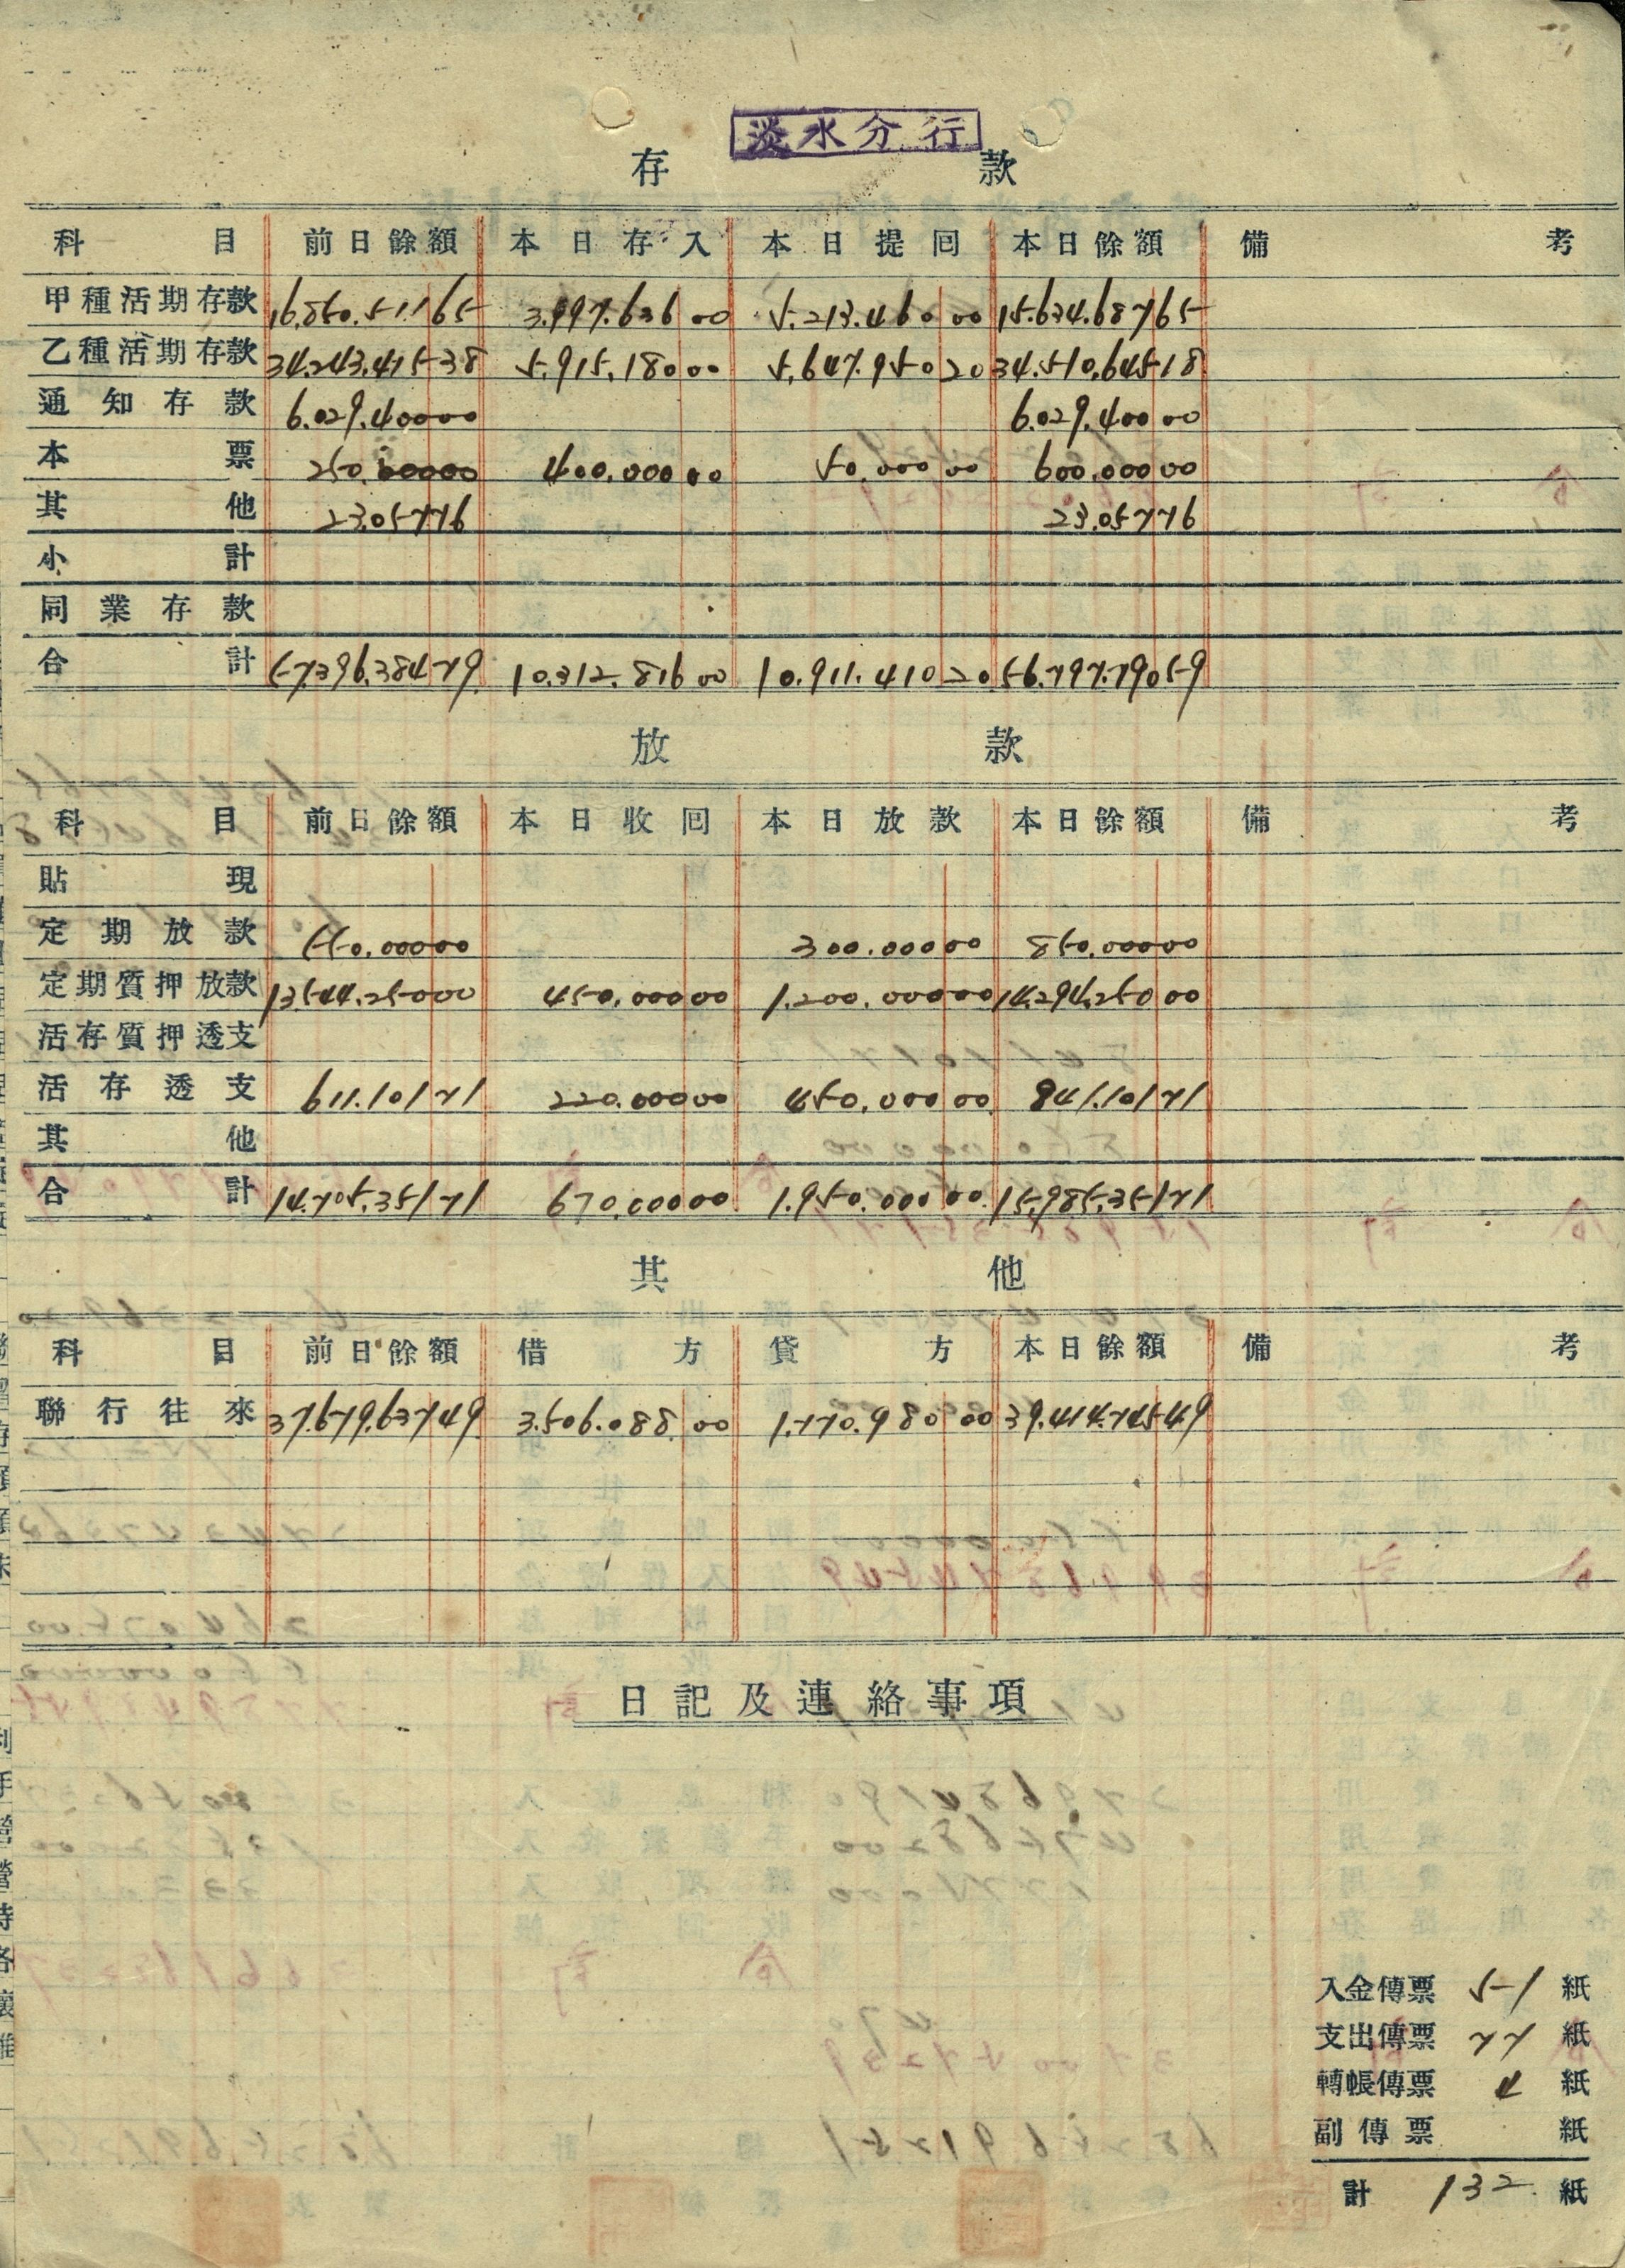 淡水分行
存款
科目 前日餘額 本日存入 本日提回 本日餘額 備考
甲種活期存款 16.850.511 65 3.997.636 00 5.213.460 00 15.634.687 65
乙種活期存款 34.243.415 38 5.915.180 00 5.647.950 20 34.510.645 18
通知存款 6.029.400 00 6.029.400 00
本票 250.000 00 400.000 00 50.000 00 600.000 00
其他 23.057 76 23.057 76
小計
同業存款
合計 57.396.384 79 10.312.816 00 10.911.410 20 56.797.790 59
放款
科目 前日餘額 本日收回 本日放款 本日餘額 備考
貼現
定期放款 550.000 00 300.000 00 850.000 00
定期質押放款 13.544.250 00 450.000 00 1.200.000 00 14.294.250 00
活存質押透支
活存透支 611.101 71 220.000 00 450.000 00 841.101 71
其他
合計 14.705.351 71 670.000 00 1.950.000 00 15.985.351 71
其他
科目 前日餘額 借方 貸方 本日餘額 備考
聯行往來 37.679.637 49 3.506.088 00 1.770.980 00 39.414.745 49
日記及連絡事項
入金傳票 51 紙
支出傳票 77 紙
轉帳傳票 4 紙
副傳票 紙
計 132 紙